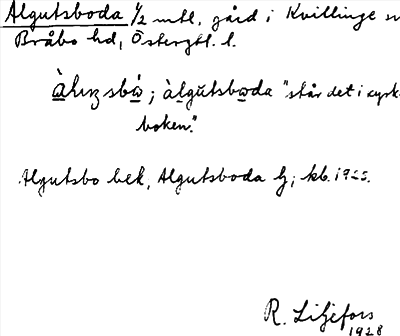 Algutsboda 1/2 mtl, gård i Kvillinge sn
Bråbo hd, Östergtl. l.
àlgutsboda "står det i kyrk-
boken."
Algutsbo bek, Algutsboda hj; kb. 1925.
R. Liljefors
1928